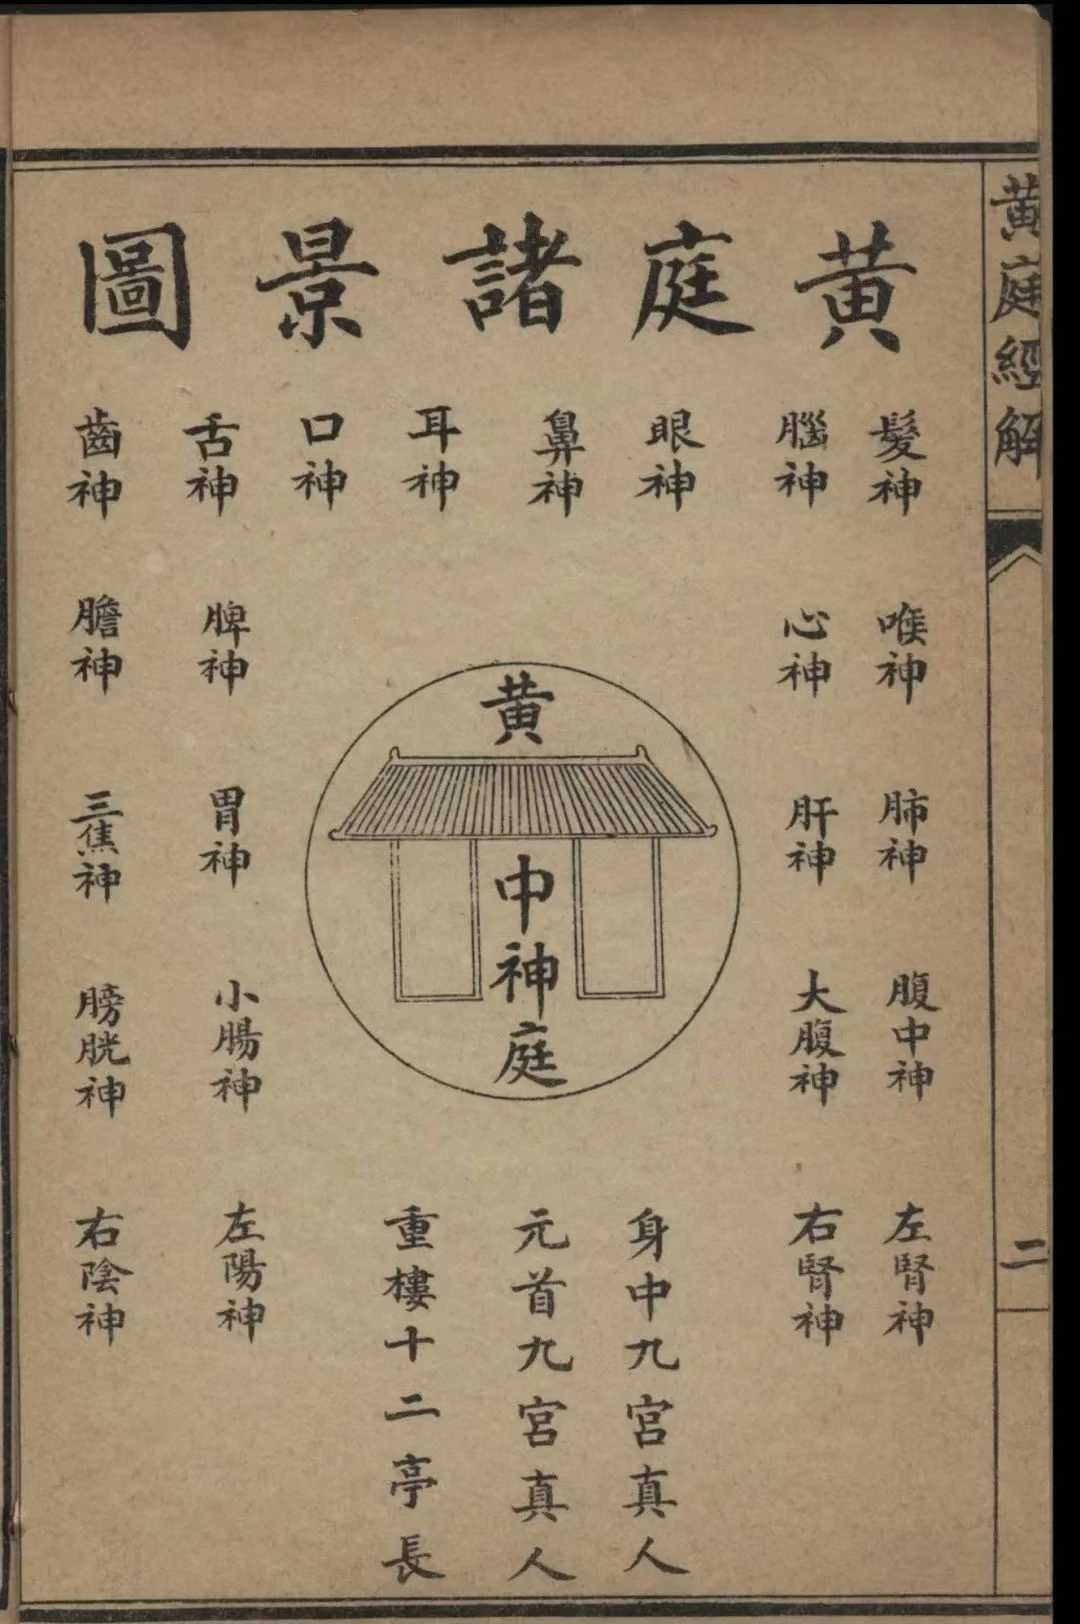 黄庭經解
二
黄庭諸景圖
髮神
腦神
眼神
鼻神
耳神
口神
舌神
齒神
喉神
心神
脾神
膽神
肺神
肝神
胃神
三焦神
腹中神
大腹神
小腸神
膀胱神
左腎神
右腎神
身中九宮真人
元首九宮真人
重樓十二亭長
左陽神
右陰神
黄
中神庭